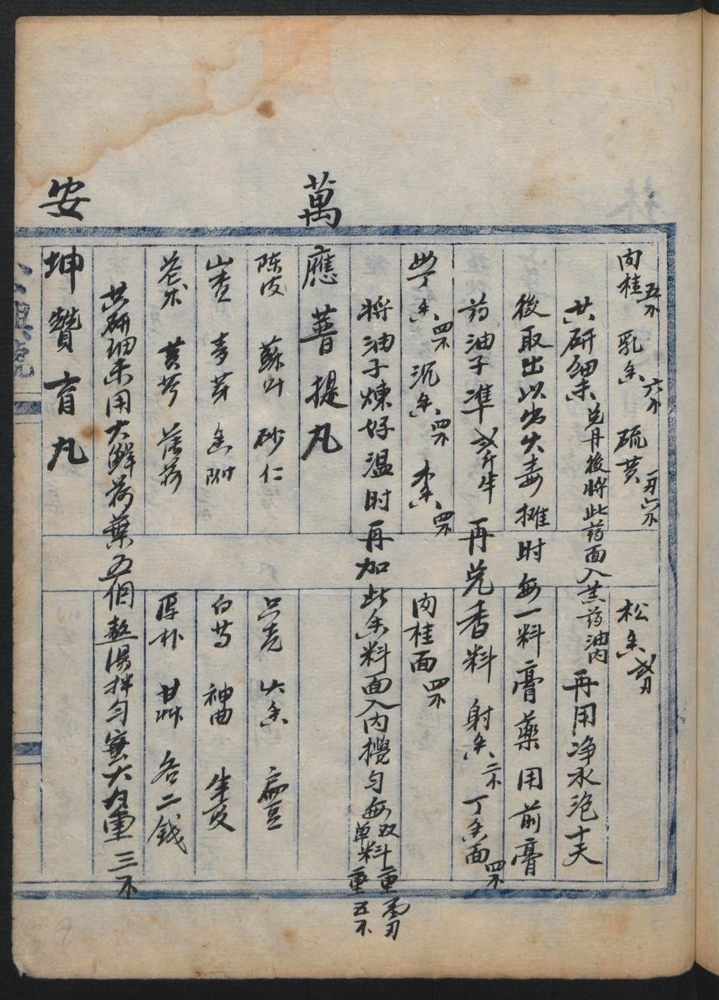 肉桂五钱 乳香六钱 硫黄一两六钱 松香
共研细末兑丹後将此药面入羔药油内 再用净水泡十天
後取出以出火毒摊时每一料膏藥用前膏
药油子準斤半 再兑香料 射香二钱 丁香面四钱
香四钱 沉香四钱 木香四钱 肉桂面四钱
将油子煉好温时再加此香料面入内攪匀每双料重两 单料重五钱
萬應菩提丸
陈皮 蘇叶 砂仁 只壳 火香 扁豆
山查 麦芽 香附 白芍 神曲 半夏
苍术 黄芩 薄荷 厚朴 甘草 各二錢
共研细末用大鲜荷葉五個熬湯拌匀蜜大丸重三钱
安坤贊育丸